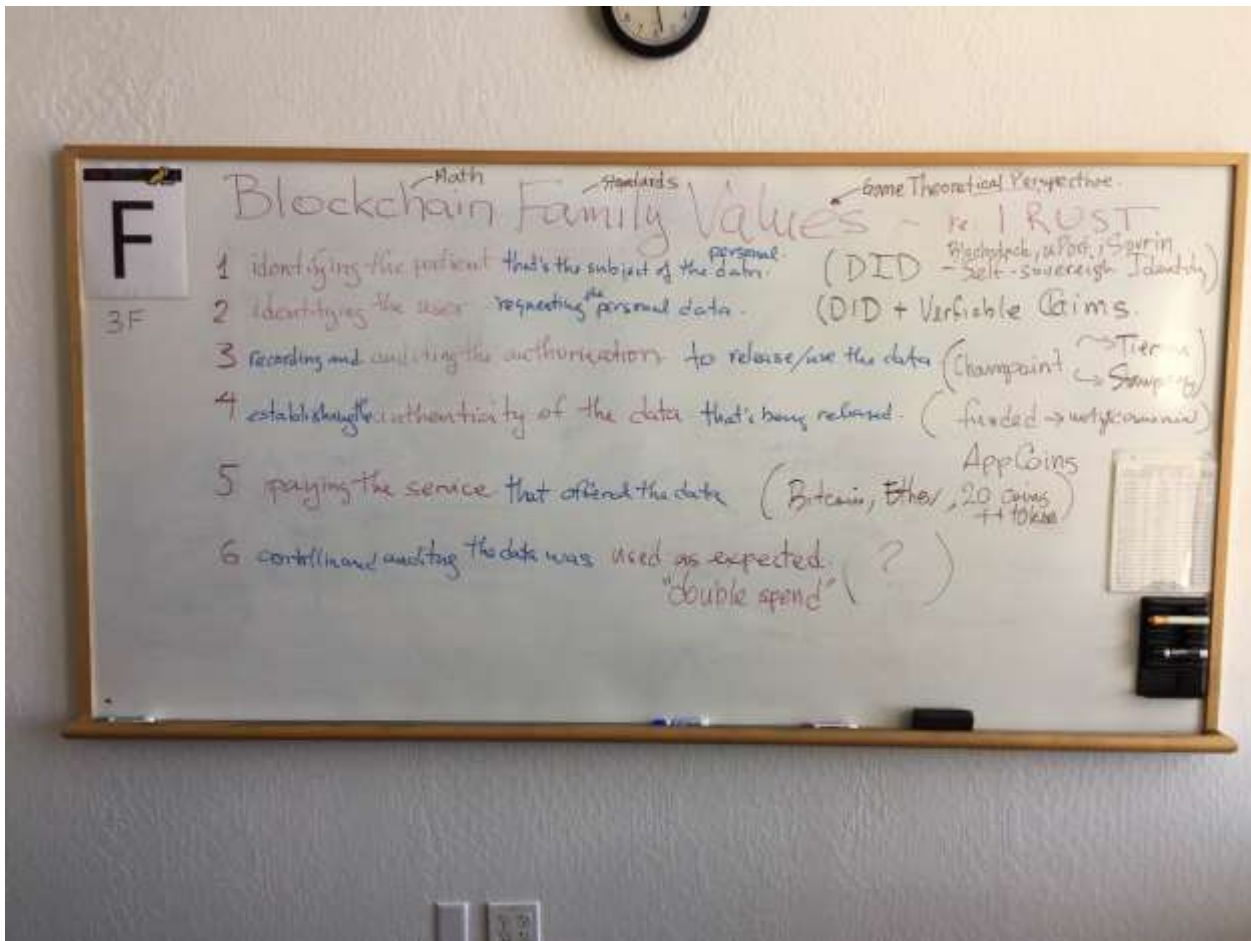 F
3F
Math
Standards
Game Theoretical Perspective.
Blockchain Family Values - re. TRUST
1 identifying the patient that's the subject of the personal data. (DID Blockstack, uPort, Sovrin
- Self-sovereign Identity)
2 identifying the user requesting the personal data. (DID + Verfiable Claims.
3 recording and auditing the authorization to release/use the data (Chainpoint → Tierion
4 establishing the authenticity of the data that's being released. ( funded →
AppCoins
5 paying the service that offered the data (Bitcoin, Ether, 20 coins
++ tokens)
6 and auditing the data was used as expected. ( ? )
"double spend"